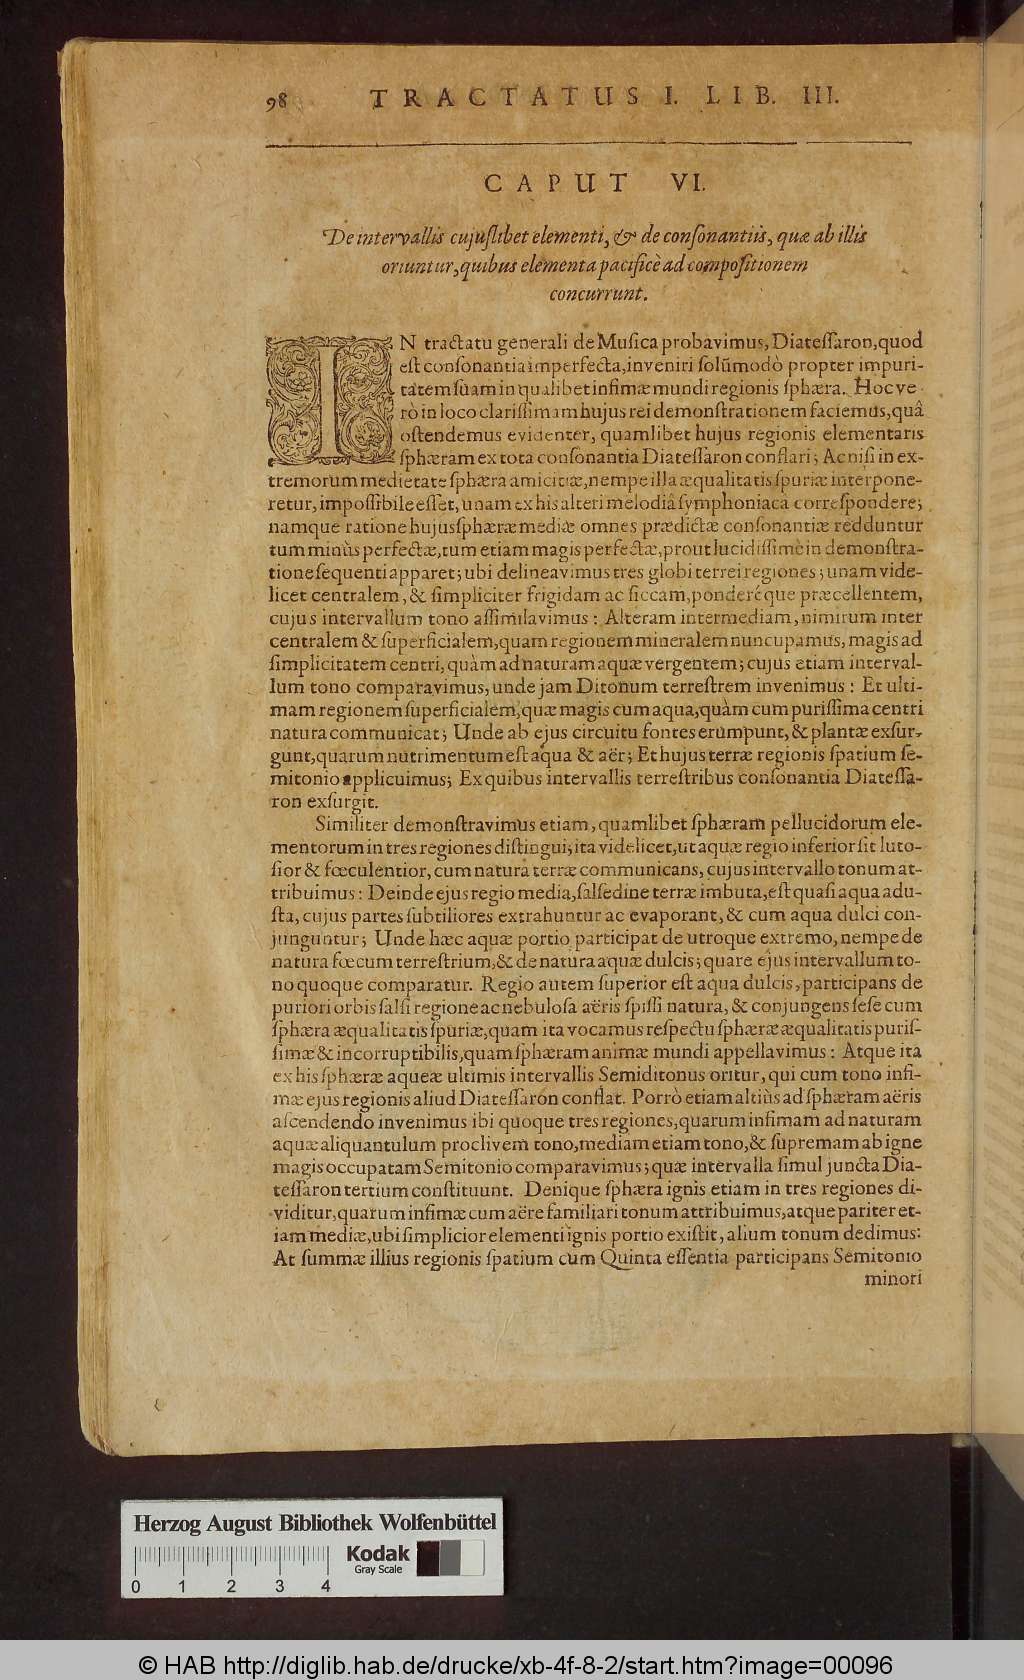 98 TRACTATUS I. LIB. III.
CAPUT VI.
De intervallis cujuſlibet elementi, & de conſonantiis, quæ ab illis
oriuntur, quibus elementa pacificè ad compoſitionem
concurrunt.
IN tractatu generali de Muſica probavimus, Diateſſaron, quod
eſt conſonantia imperfecta, inveniri ſolũmodò propter impuri-
tatem ſuam in qualibet infimæ mundi regionis ſphæra. Hoc ve-
rò in loco clariſſimam hujus rei demonſtrationem faciemus, quâ
oſtendemus evidenter, quamlibet hujus regionis elementaris
ſphæram ex tota conſonantia Diateſſaron conflari; Ac niſi in ex-
tremorum medietate ſphæra amicitiæ, nempe illa æqualitatis ſpuriæ interpone-
retur, impoſſibile eſſet, unam ex his alteri melodiâ ſymphoniaca correſpondere;
namque ratione hujus ſphæræ mediæ omnes prædictæ conſonantiæ redduntur
tum minùs perfectæ, tum etiam magis perfectæ, prout lucidiſſimè in demonſtra-
tione ſequenti apparet; ubi delineavimus tres globi terrei regiones; unam vide-
licet centralem, & ſimpliciter frigidam ac ſiccam, ponderéque præcellentem,
cujus intervallum tono aſſimilavimus: Alteram intermediam, nimirum inter
centralem & ſuperficialem, quam regionem mineralem nuncupamus, magis ad
ſimplicitatem centri, quàm ad naturam aquæ vergentem; cujus etiam interval-
lum tono comparavimus, unde jam Ditonum terreſtrem invenimus: Et ulti-
mam regionem ſuperficialem, quæ magis cum aqua, quàm cum puriſſima centri
natura communicat; Unde ab ejus circuitu fontes erumpunt, & plantæ exſur-
gunt, quarum nutrimentum eſt aqua & aër; Et hujus terræ regionis ſpatium ſe-
mitonio applicuimus; Ex quibus intervallis terreſtribus conſonantia Diateſſa-
ron exſurgit.
Similiter demonſtravimus etiam, quamlibet ſphæram pellucidorum ele-
mentorum in tres regiones diſtingui; ita videlicet, ut aquæ regio inferior ſit luto-
ſior & fœculentior, cum natura terræ communicans, cujus intervallo tonum at-
tribuimus: Deinde ejus regio media, ſalſedine terræ imbuta, eſt quaſi aqua adu-
ſta, cujus partes ſubtiliores extrahuntur ac evaporant, & cum aqua dulci con-
junguntur; Unde hæc aquæ portio participat de utroque extremo, nempe de
natura fœcum terreſtrium, & de natura aquæ dulcis; quare ejus intervallum to-
no quoque comparatur. Regio autem ſuperior eſt aqua dulcis, participans de
puriori orbis ſalſi regione ac nebuloſa aëris ſpiſſi natura, & conjungens ſeſe cum
ſphæra æqualitatis ſpuriæ, quam ita vocamus reſpectu ſphæræ æqualitatis puriſ-
ſimæ & incorruptibilis, quam ſphæram animæ mundi appellavimus: Atque ita
ex his ſphæræ aqueæ ultimis intervallis Semiditonus oritur, qui cum tono infi-
mæ ejus regionis aliud Diateſſarón conflat. Porrò etiam altiùs ad ſphæram aëris
aſcendendo invenimus ibi quoque tres regiones, quarum infimam ad naturam
aquæ aliquantulum proclivem tono, mediam etiam tono, & ſupremam ab igne
magis occupatam Semitonio comparavimus; quæ intervalla ſimul juncta Dia-
teſſaron tertium conſtituunt. Denique ſphæra ignis etiam in tres regiones di-
viditur, quarum infimæ cum aëre familiari tonum attribuimus, atque pariter et-
iam mediæ, ubi ſimplicior elementi ignis portio exiſtit, alium tonum dedimus:
At ſummæ illius regionis ſpatium cum Quinta eſſentia participans Semitonio
minori
Herzog August Bibliothek Wolfenbüttel
Kodak
Gray Scale
0 1 2 3 4
© HAB http://diglib.hab.de/drucke/xb-4f-8-2/start.htm?image=00096